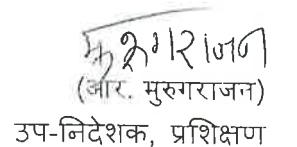 मुरुगराजन
(आर. मुरुगराजन)
उप-निदेशक, प्रशिक्षण